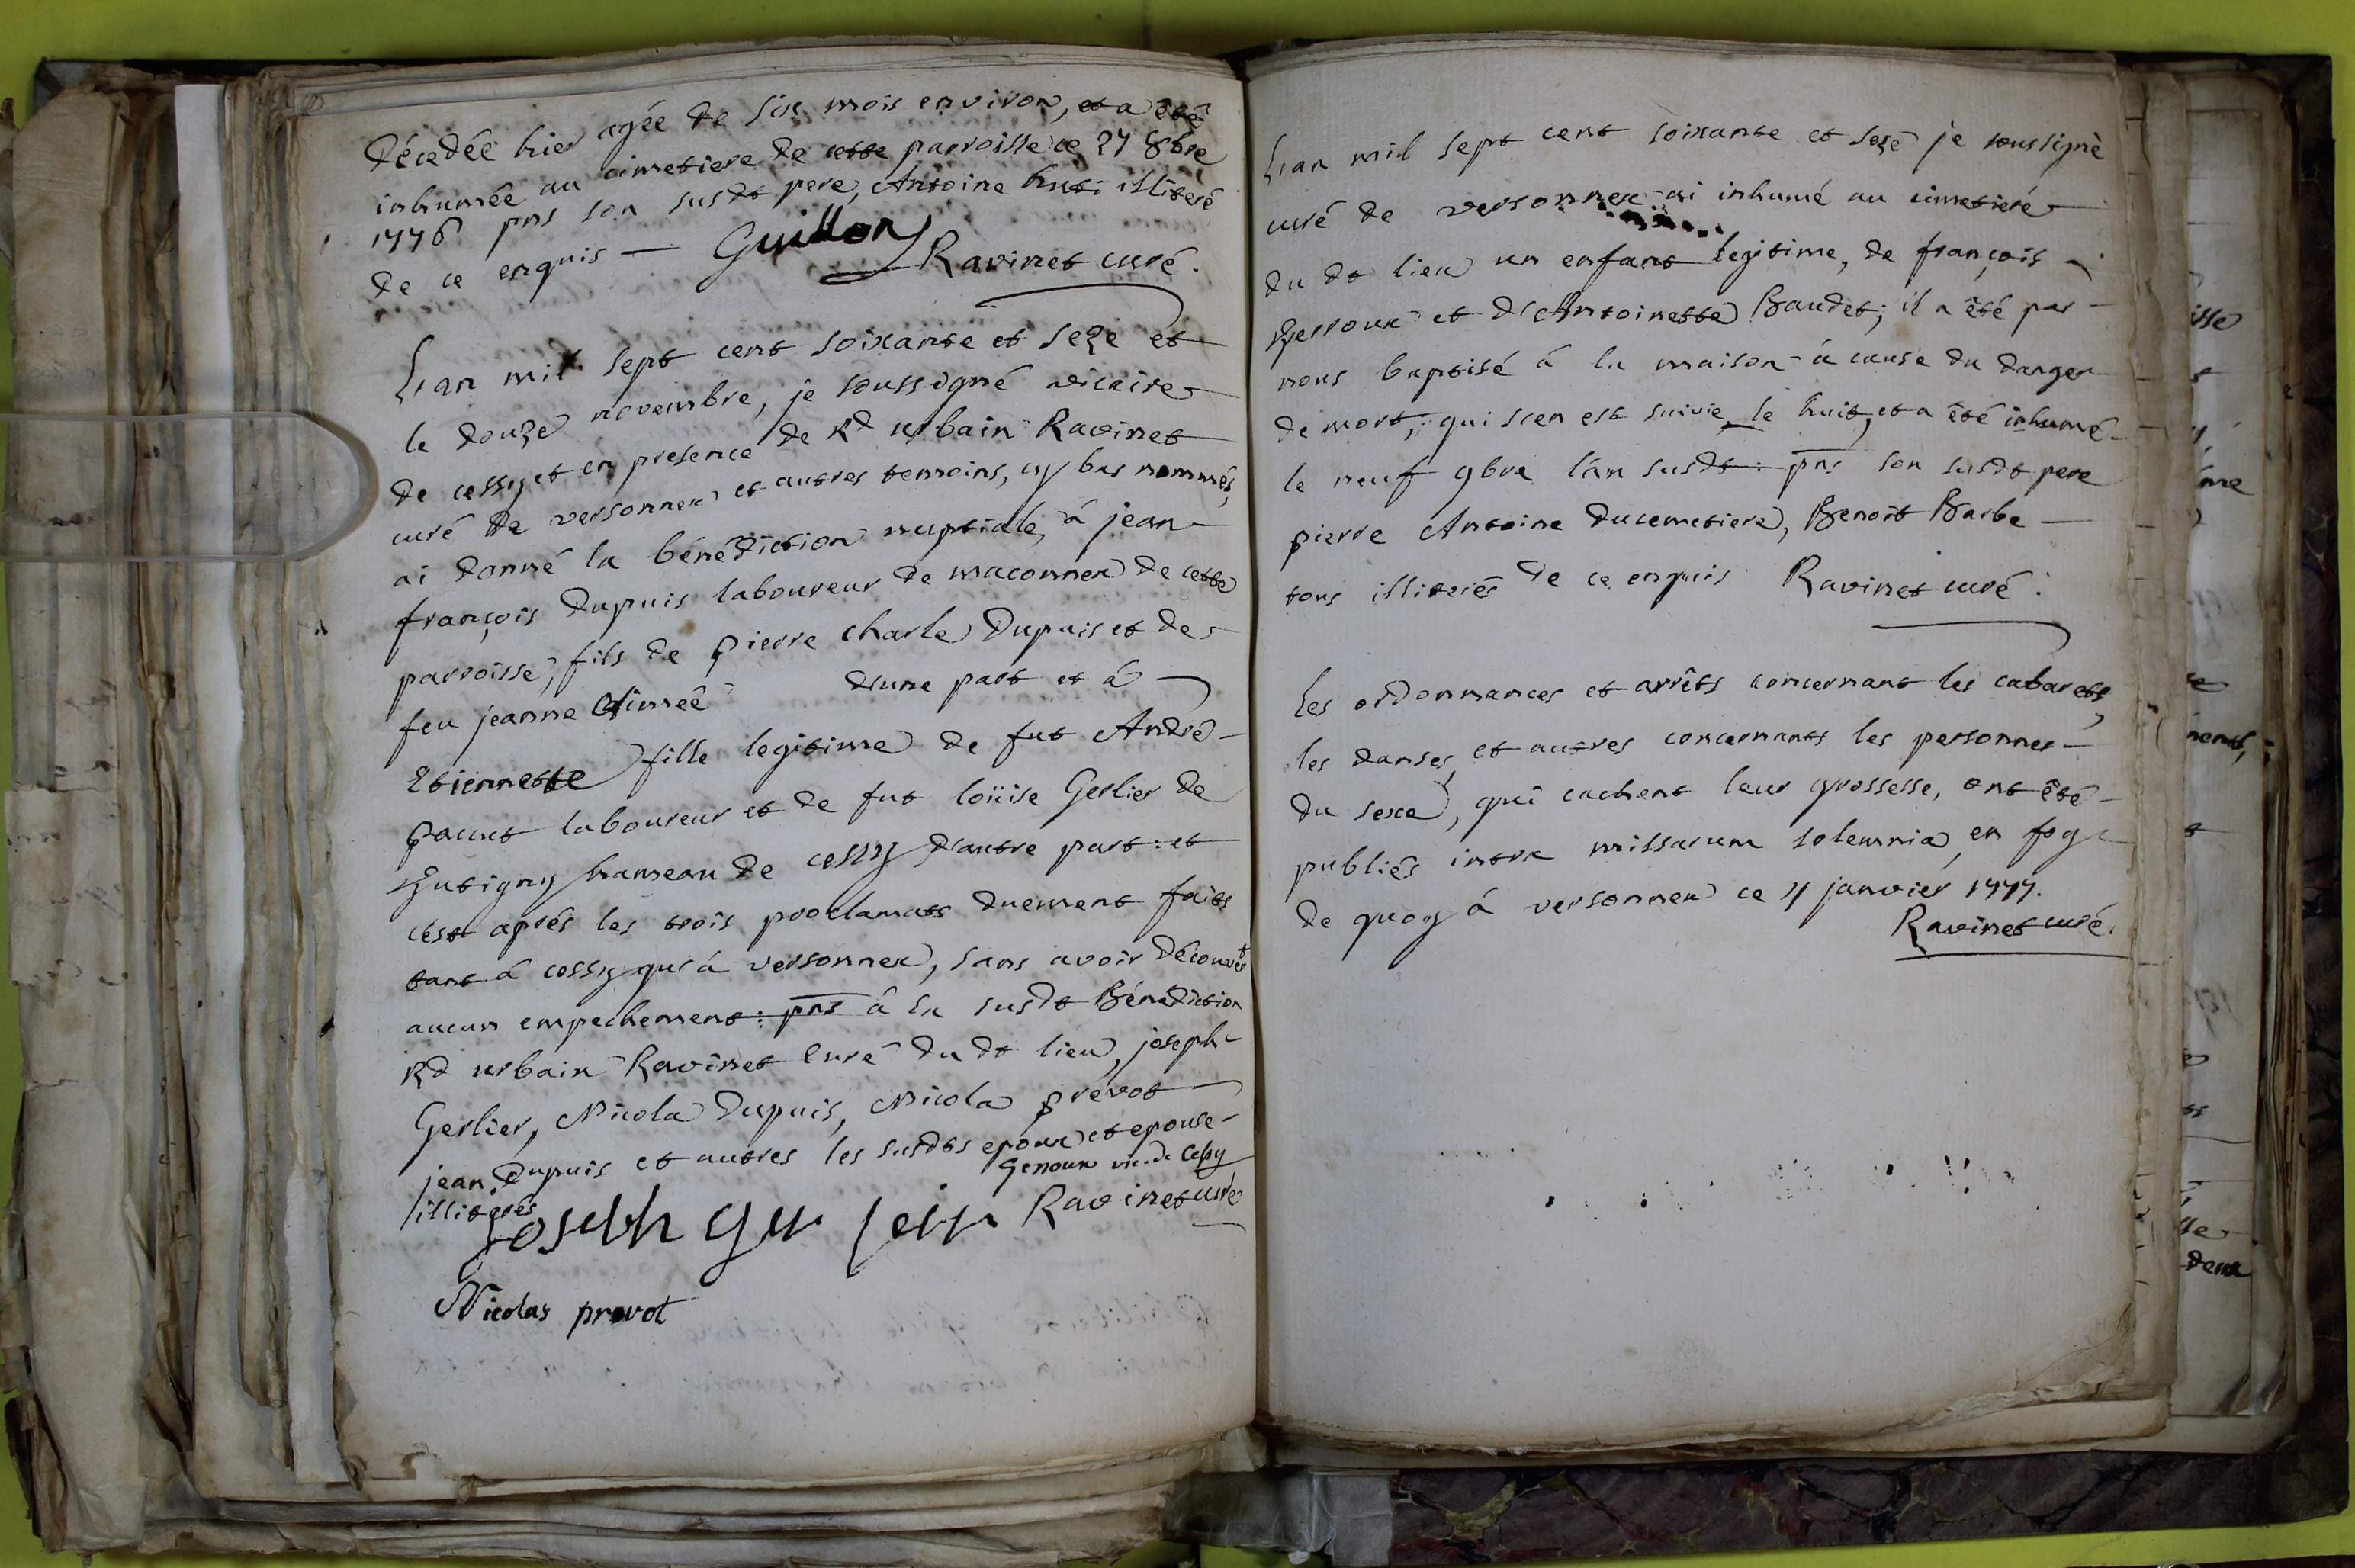 décedée hier agée de six mois environ, et a êté
inhumée au cimetiere de cette parroisse ce 27 8bre
1776 pns son susdt pere, Antoine hut: illiteré
de ce enquis — Guillon
Ravinet curé.
L'an mil sept cent soixante et seze et
le douze novembre, je soussigné vicaire
de cessy et en presence de Rd urbain Ravinet
curé de versonnex et autres temoins, cy bas nommés,
ai donné la bénédiction nuptiale, à jean
françois Dupuis laboureur de maconnex de cette
parroisse, fils de pierre charle Dupuis et de
feu jeanne Aimée d'une part et à
Etiennette fille legitime de fut André
pacut laboureur et de fut loüise Gerlier de
hameau de cessy d'autre part: et
c'est aprés les trois proclamats duement faits
tant à cessy qu'à versonnex, sans avoir découvert
aucun empechement: pns à la susdt Bénédiction
Rd urbain Ravinet Curé du dt lieu, joseph
Gerlier, Nicola Dupuis, Nicola prévot
jean Dupuis et autres les susdts epoux et epouse
illiterés Genoux vic. de Cessy
Joseph Ravinet curé
Nicolas prevot
L'an mil sept cent soixante et sezé je soussigné
curé de versonnex ai inhumé au cimetieré
du dt lieu un enfant legitime, de françois
Perroux et d'Antoinette Baudet; il a été par
nous baptisé à la maison à cause du danger
de mort, qui s'en est suivie le huit, et a êté inhumé
le neuf 9bre l'an susdt: pns son susdt pere
pierre Antoine ducemetiere, Benoit Barbe
tous illiterés de ce enquis Ravinet curé.
Les ordonnances et arrêts concernant les cabarets,
les danses, et autres concernants les personnes
du sexe, qui cachent leur grossesse, ont êté
publiés intra missarum solemnia, en foy
de quoy à versonnex ce 11 janvier 1777.
Ravinet curé.